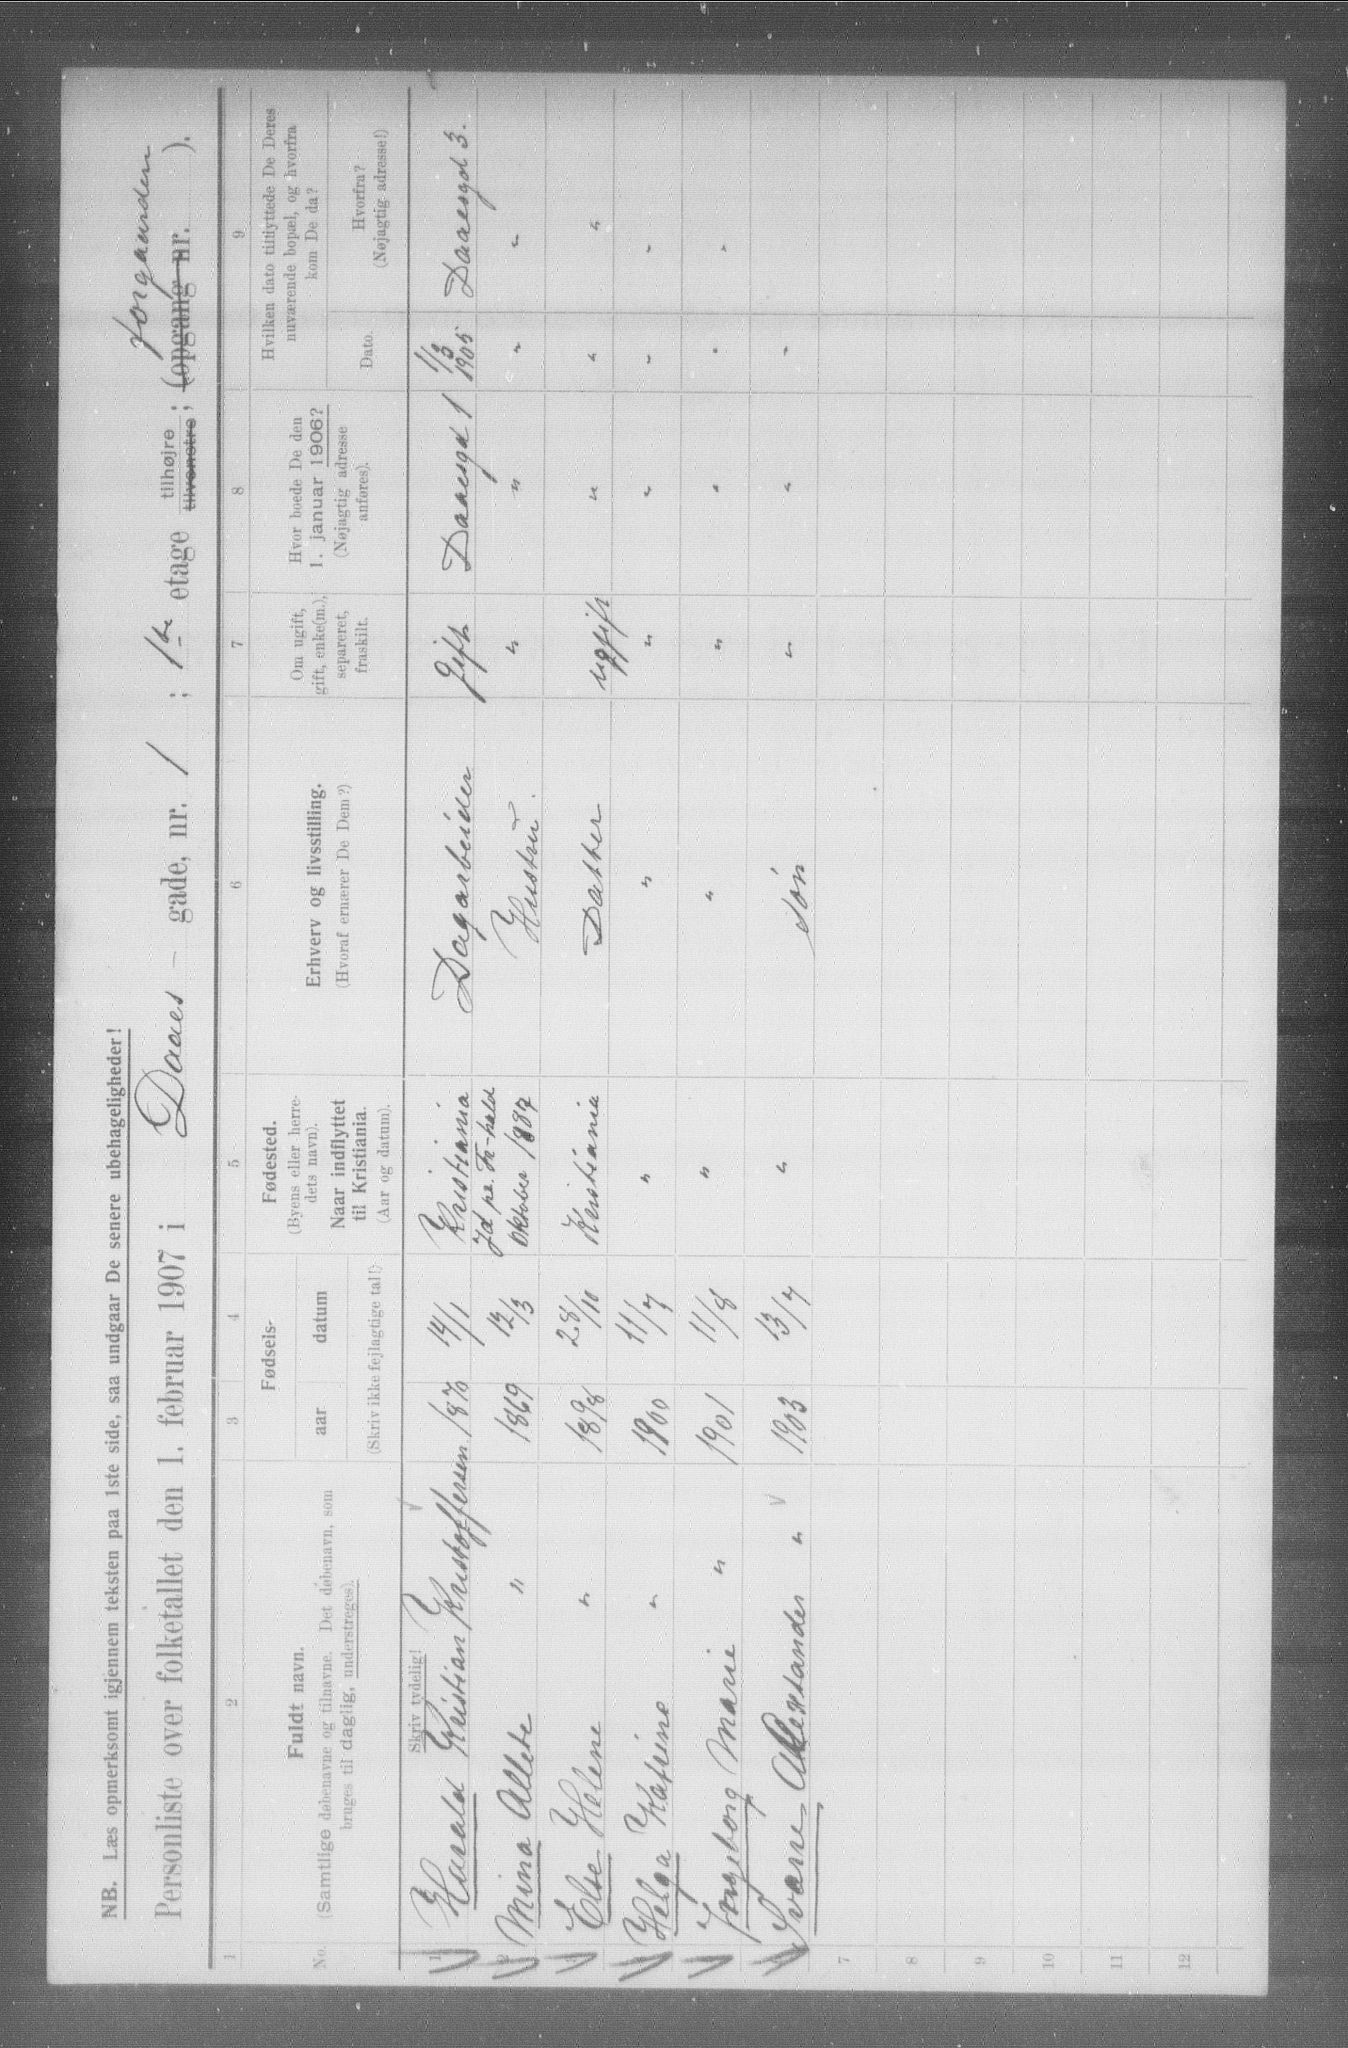 NB. Læs opmerksomt igjennem teksten paa 1ste side, saa undgaar De senere ubehageligheder!
Personliste over folketallet den 1. februar 1907 i Daaes – gade, nr. 1 ; 1ste etage tilhøjre tilvenstre ; (opgang nr. ).
forgaarden
1 2 3 4 5 6 7 8 9
No.
Fuldt navn.
(Samtlige døbenavne og tilnavne. Det døbenavn, som
bruges til daglig, understreges).
Fødsels-
aar datum
(Skriv ikke fejlagtige tal!)
Fødested.
(Byens eller herre-
dets navn).
Naar indflyttet
til Kristiania.
(Aar og datum).
Erhverv og livsstilling.
(Hvoraf ernærer De Dem?)
Om ugift,
gift, enke(m.),
separeret,
fraskilt.
Hvor boede De den
1. januar 1906?
(Nøjagtig adresse
anføres).
Hvilken dato tilflyttede De Deres
nuværende bopæl, og hvorfra
kom De da?
Dato.
Hvorfra?
(Nøjagtig adresse!)
Skriv tydelig!
1 Harald Kristian Kristoffersen 1870 14/1 Kristiania Dagarbeider Gift Daaesgd 1 1/3 1905 Daaesgd 3.
2 Mina " 1869 12/3 Id pr. Fr-hald Oktober 1887 Hustru " " " "
3 Else Helene " 1898 28/10 Kristiania Datter ugift " " "
Helga Katrine " 1900 11/7 " " " " " "
Ingeborg Marie " 1901 11/8 " " " " " "
Sverre Alexander " 1903 13/7 " Søn " " "
7
8
9
10
11
12